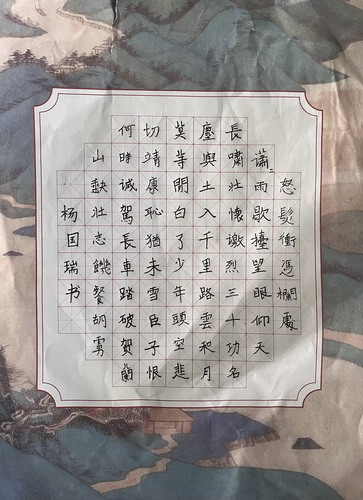 怒髮衝憑欄處
瀟々雨歇擡望眼仰天
長嘯壯懷激烈三十功名
塵與土入千里路雲和月
莫等閒白了少年頭空悲
切靖康恥猶未雪臣子恨
何時誠駕長車踏破賀蘭
山缺壯志饑餐胡虜
杨国瑞书